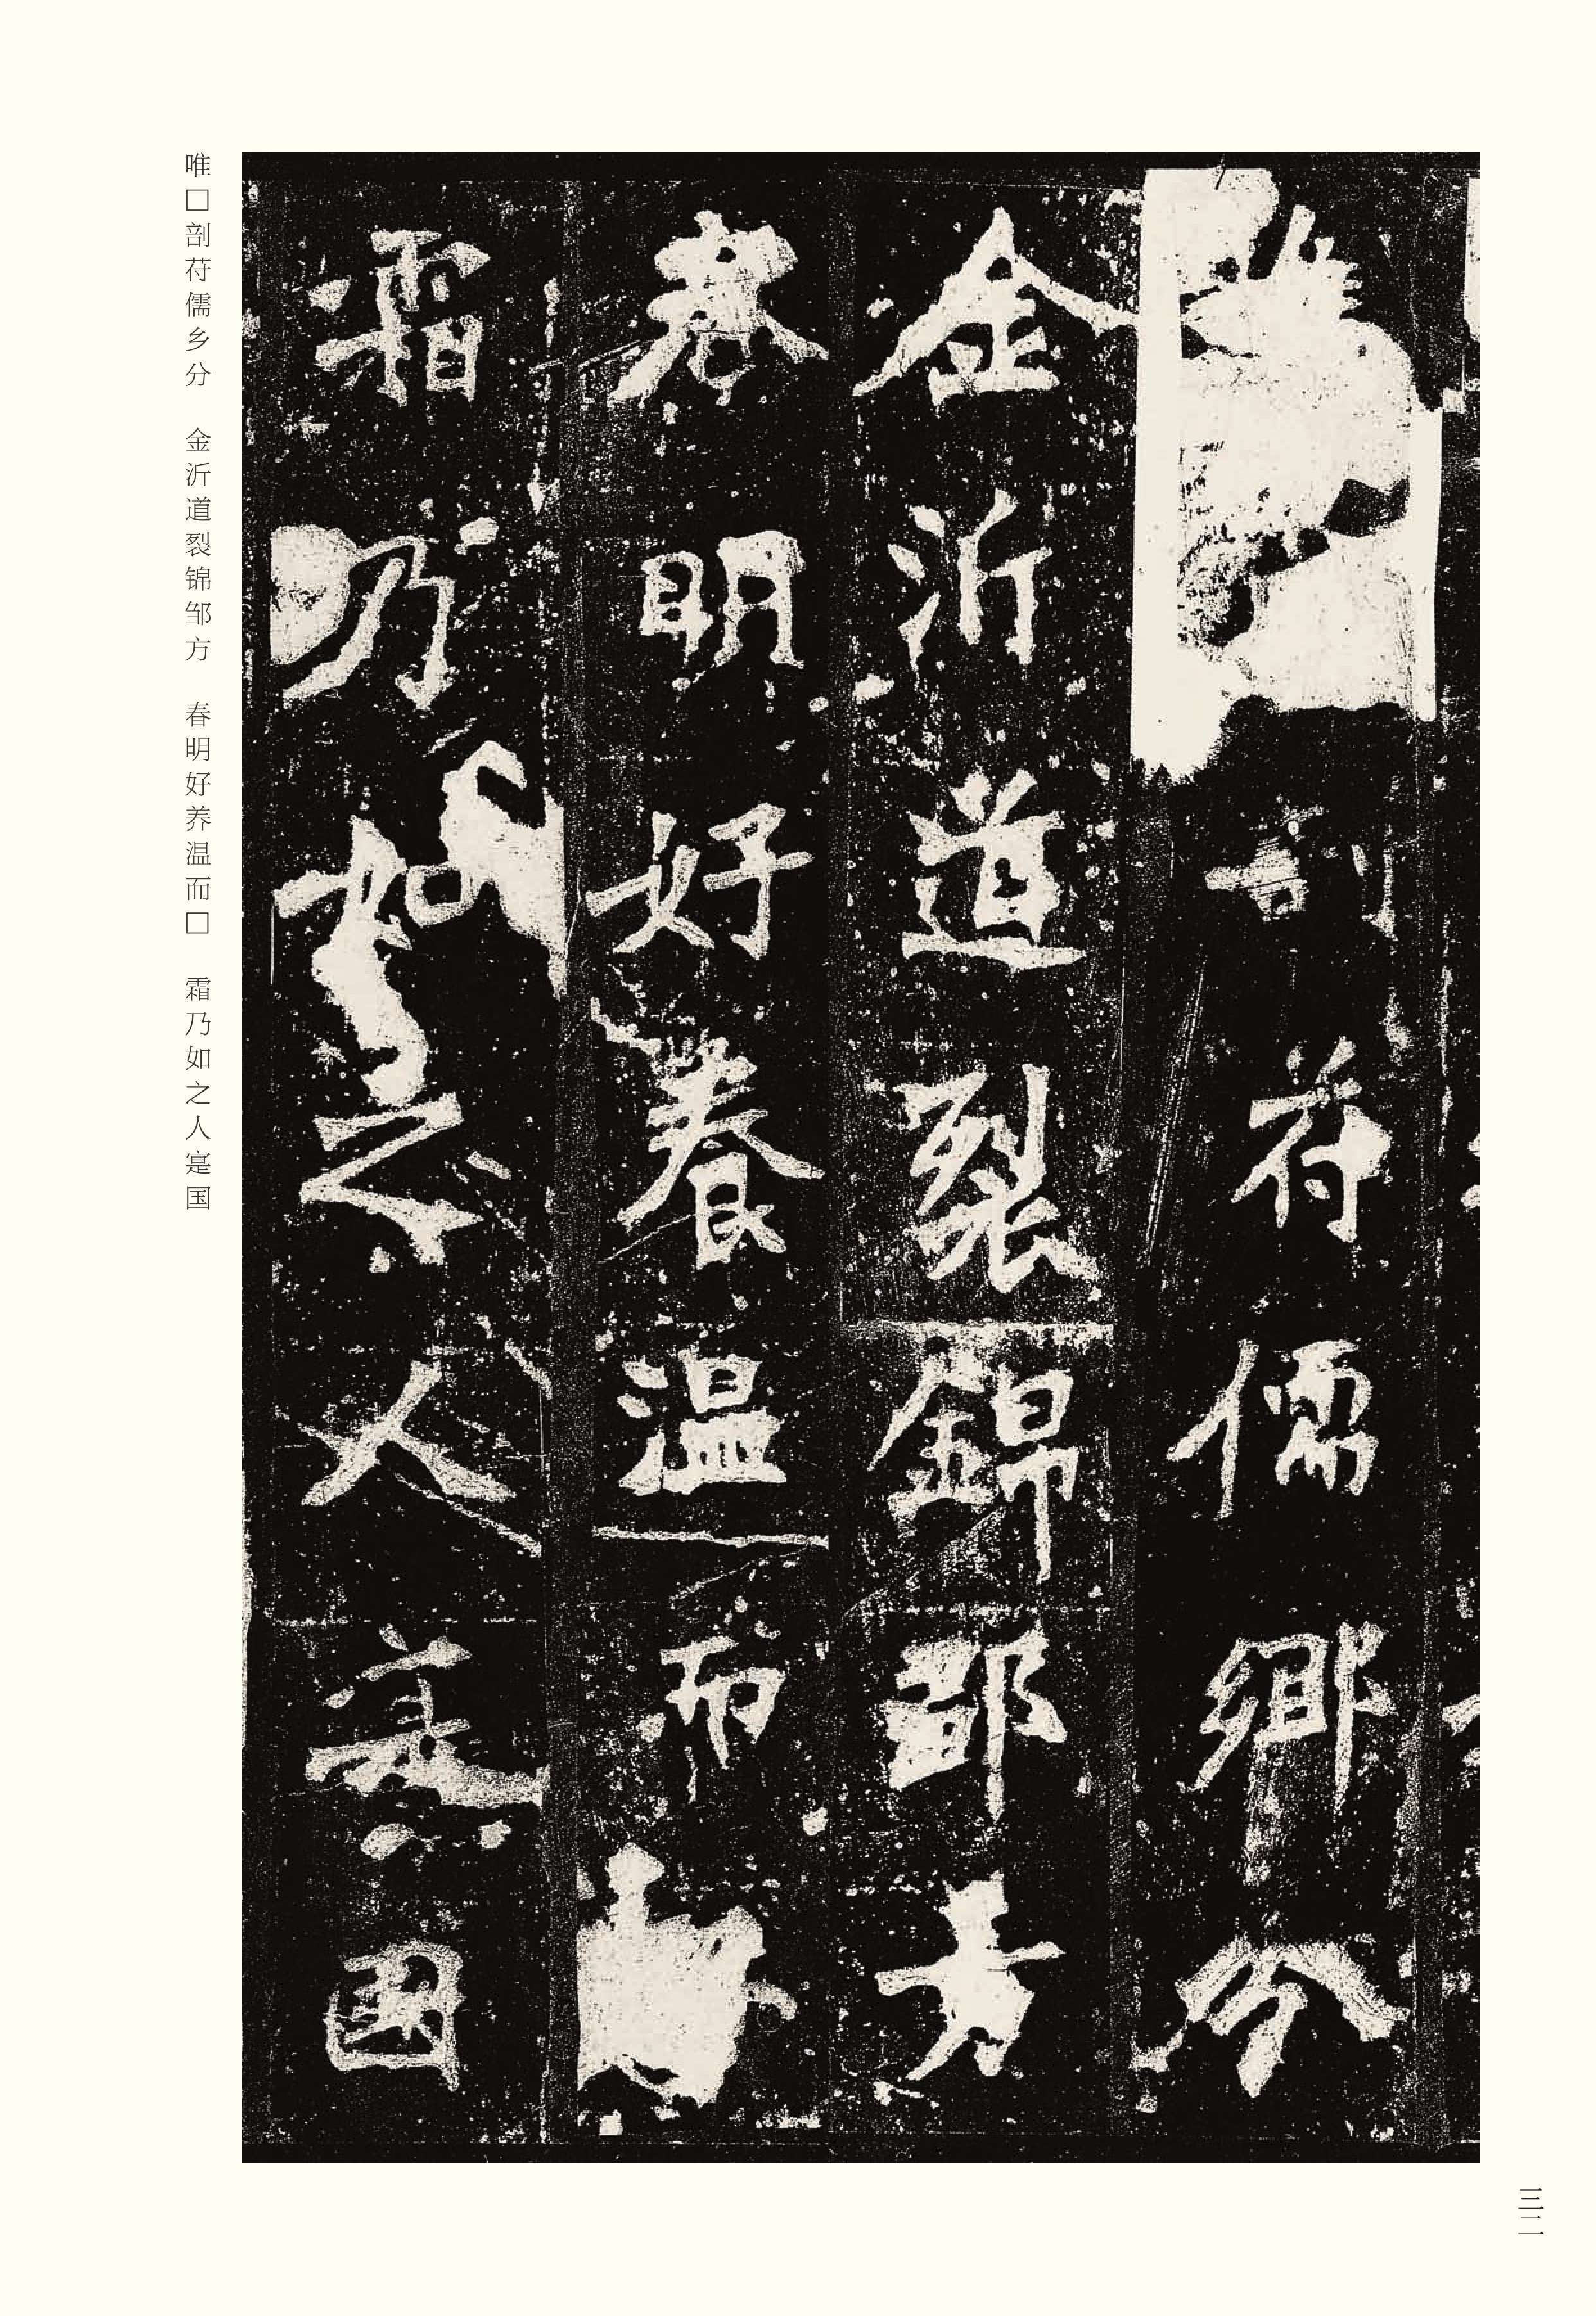 剖苻儒鄉分
金沂道裂錦鄒方
春明好養溫而
霜乃如之人寔国
唯□剖苻儒乡分　金沂道裂锦邹方　春明好养温而□　霜乃如之人寔国
三二